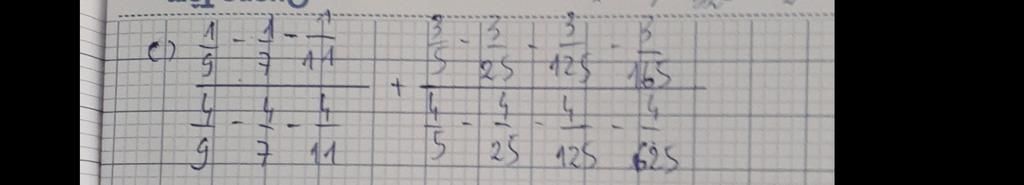 c) \frac{\frac{1}{9} - \frac{1}{7} - \frac{1}{11}}{\frac{4}{9} - \frac{4}{7} - \frac{4}{11}} + \frac{\frac{3}{5} - \frac{3}{25} - \frac{3}{125} - \frac{3}{165}}{\frac{4}{5} - \frac{4}{25} - \frac{4}{125} - \frac{4}{625}}